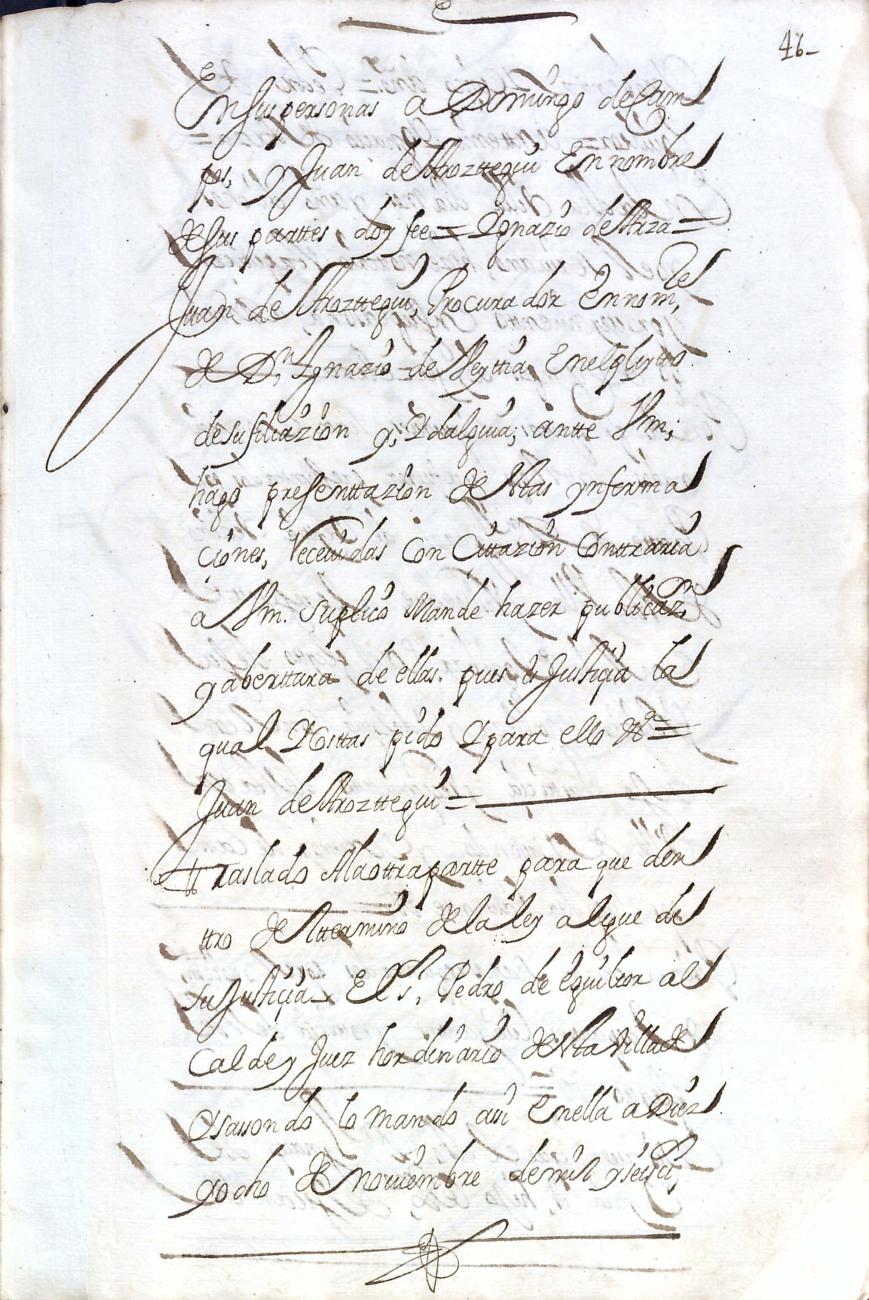 46
En sus personas a Domingo de Cam
pos, y Juan de Arozttegui En nombre
de sus parttes, doy fee = Ygnazio de Arza =
Juan de Arozttegui, Procurador En nom.e
de D.n Ygnazio de Veyttia, En el pleytto
de su filiazion y, Ydalguia, antte Vm;
hago presenttazion de Esttas ynforma
ciones, Recevidas Con Cittazion Conttraria
a Vm. suplico Mande hazer publicaz.on
y aberttura de ellas. pues es Justiçia la
qual Y Costtas pido Y para ello &.a =
Juan de Arozttegui =
Traslado A la ottra partte para que den
ttro de el ttermino de la ley alegue de
su Justiçia El S.r Pedro de Eguibar al
Calde y Juez hordinario de Estta Villa de
Elsasondo lo mando assi En ella a Diez
y ocho de Noviembre de mil y seisz.os